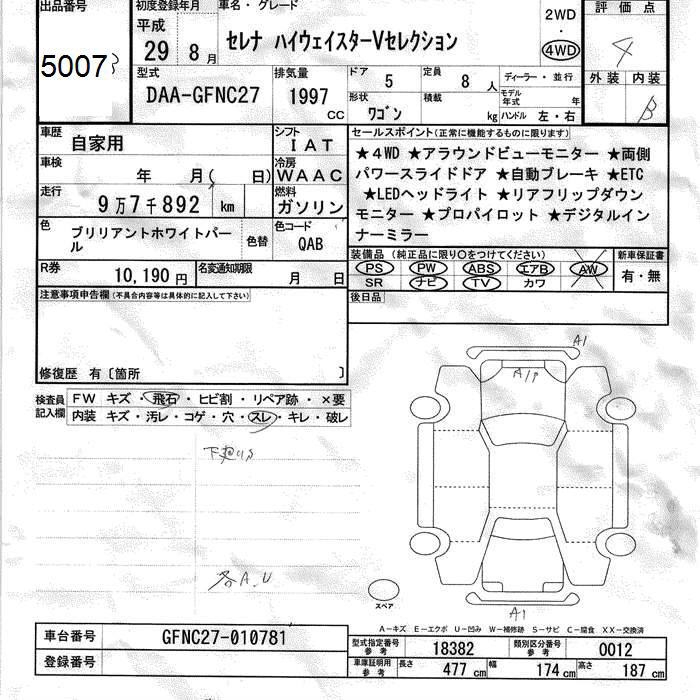 出品番号
5007
初度登録年月
平成
29 8 月
車名・グレード
セレナ ハイウェイスターVセレクション
2WD
・
4WD
評価点
4
外装 内装
B
型式
DAA-GFNC27
排気量
1997
CC
ドア
5
定員
8 人
ディーラー・並行
形状
ワゴン
積載
kg
モデル年式 年
ハンドル 左・右
車歴
自家用
シフト
IAT
車検
年 月( 日)
冷房
WAAC
走行
9万7千892 km
燃料
ガソリン
色
ブリリアントホワイトパール
色替
色コード
QAB
R券
10,190円
名変通知期限
月 日
セールスポイント(正常に機能するものに限ります)
★4WD ★アラウンドビューモニター ★両側
パワースライドドア ★自動ブレーキ ★ETC
★LEDヘッドライト ★リアフリップダウン
モニター ★プロパイロット ★デジタルイン
ナーミラー
装備品 (純正品に限り○をつけてください)
PS PW ABS エアB AW
SR ナビ TV カワ
新車保証書
有・無
後日品
注意事項申告欄(不具合内容等は具体的に記入して下さい)
修復歴 有〔箇所 〕
検査員
記入欄
FW キズ・飛石・ヒビ割・リペア跡・×要
内装 キズ・汚レ・コゲ・穴・スレ・キレ・破レ
各A.U
A1
A1P
A1
スペア
A－キズ E－エクボ U－凹み W－補修跡 S－サビ C－腐食 XX－交換済
車台番号
GFNC27-010781
登録番号
型式指定番号
参考
18382
類別区分番号
参考
0012
車庫証明用
参考
長さ
477 cm
幅
174 cm
高さ
187 cm